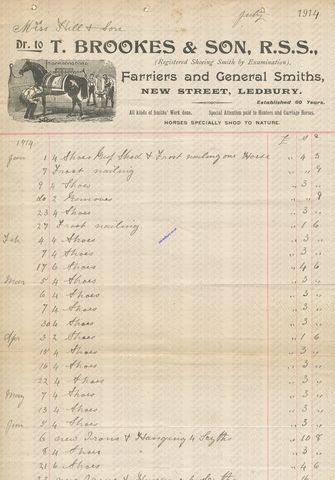 July 1914
Miss Hill & Son
Dr. to T. BROOKES & SON, R.S.S.,
(Registered Shoeing Smith by Examination),
Farriers and General Smiths,
NEW STREET, LEDBURY.
Established 60 Years.
All kinds of Smiths' Work done. Special Attention paid to Hunters and Carriage Horses.
HORSES SPECIALLY SHOD TO NATURE.
1914 £ s d
Jan 1 4 Shoes Shod & Frost nailing one Horse " 4 3
7 Frost nailing " " 9
9 4 Shoes " 3 "
do 2 Removes " " 9
23 4 Shoes " 3 "
27 Frost nailing " 1 6
Feb 4 4 Shoes " 3 "
7 4 Shoes " 3 "
17 6 Shoes " 4 6
Mar 5 4 Shoes " 3 "
6 4 Shoes " 3 "
7 4 Shoes " 3 "
30 4 Shoes " 3 "
Apr 3 2 Shoes " 1 6
4 Shoes " 3 "
16 4 Shoes " 3 "
22 4 Shoes " 3 "
May 7 4 Shoes " 3 "
13 4 Shoes " 3 "
Jun 2 4 Shoes " 3 "
6 new Irons & Hanging 4 Scyths " 10 8
8 4 Shoes " 3 "
21 6 Shoes " 4 6